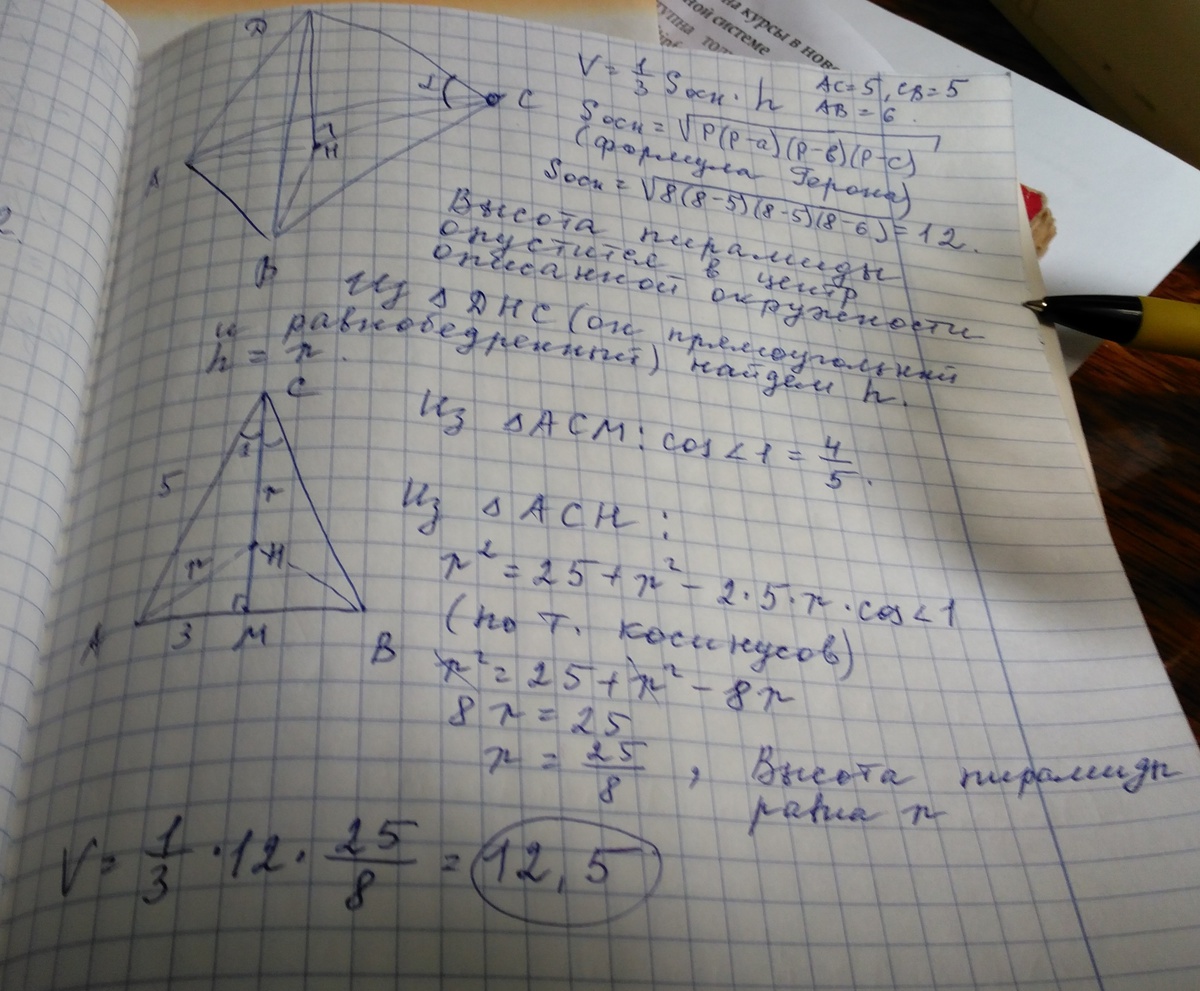 на курсы в нов
ной системе
тупна
2.
D
1
C
H
A
B
V = 1/3 Sосн · h
AC = 5, CB = 5
AB = 6.
Sосн = √P(P-a)(P-в)(P-c)
(формула Герона)
Sосн = √8(8-5)(8-5)(8-6) = 12.
Высота пирамиды
опустится в центр
описанной окружности
Из △ DHC (он прямоугольный
и равнобедренный) найдем h.
h = r.
C
1
5
r
r
H
A
3
M
B
Из △ACM: cos∠1 = 4/5.
Из △ ACH:
r² = 25 + r² - 2·5·r·cos∠1
(по т. косинусов)
r² = 25 + r² - 8r
8r = 25
r = 25/8, Высота пирамиды
равна r
V = 1/3 · 12 · 25/8 = 12,5